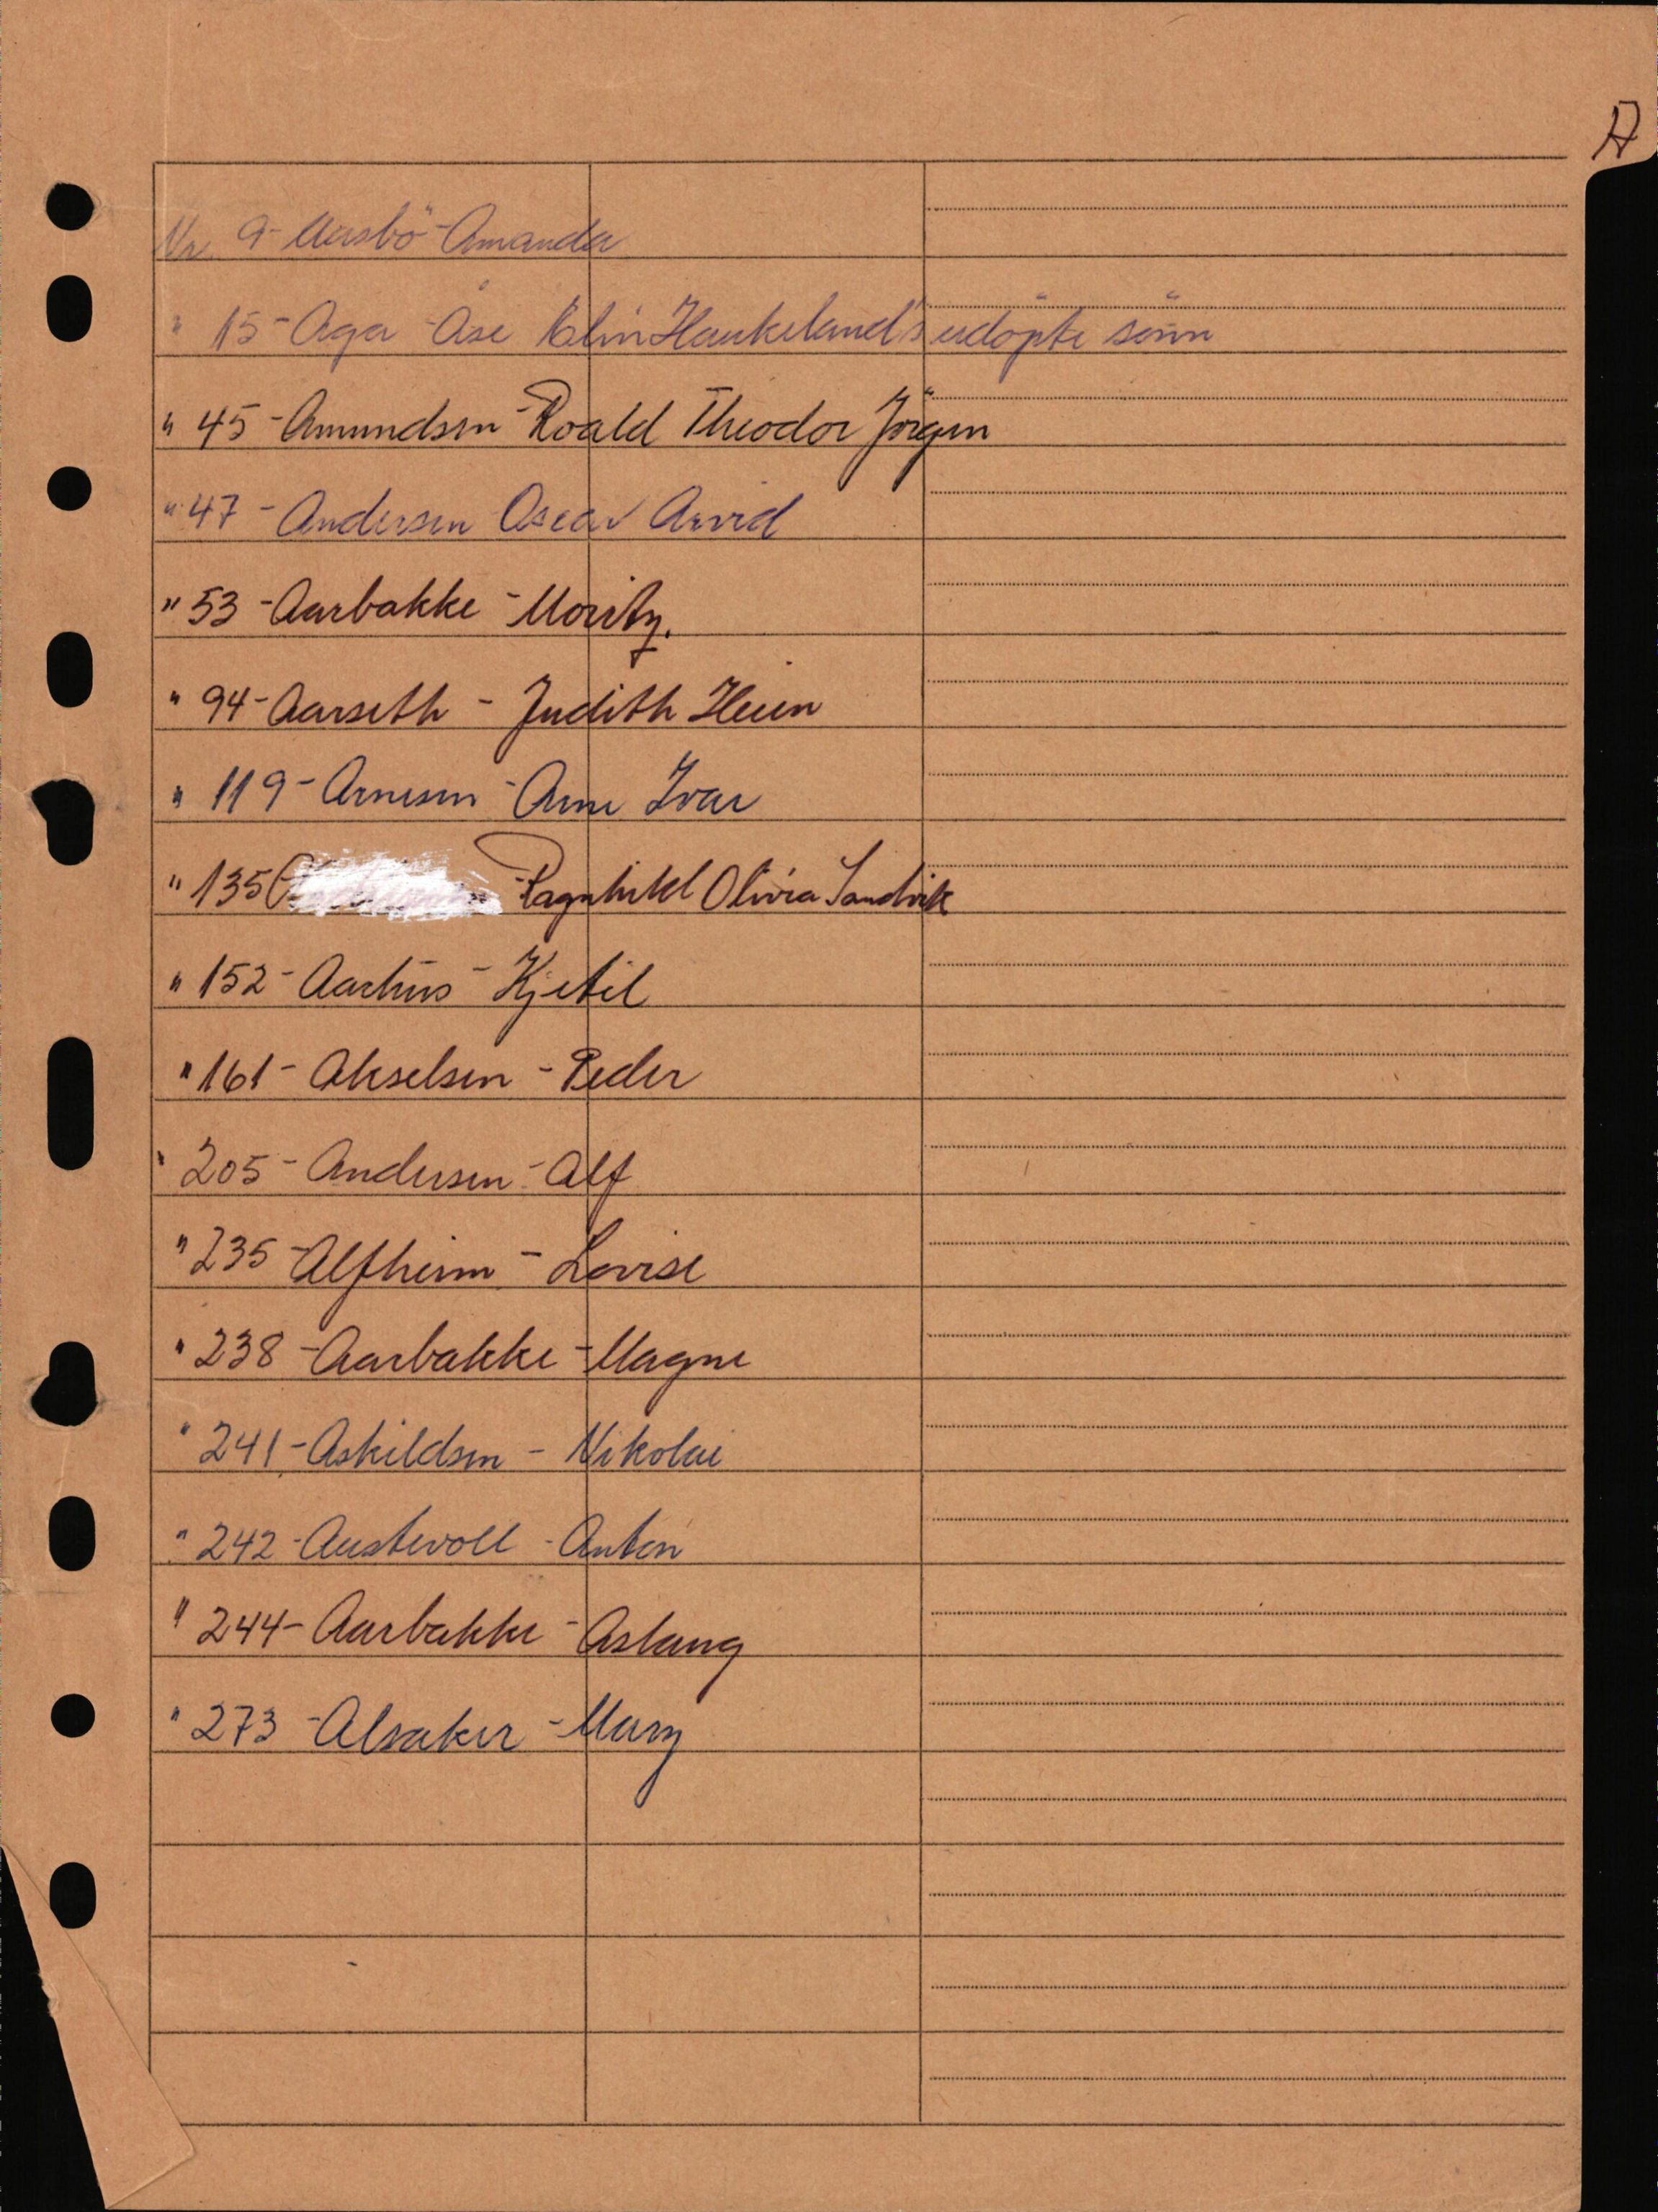 A
Nr. 9 - Aasbö - Amanda
" 15 - Aga - Åse Elin Haukeland's udöpte sönn
" 45 - Amundsen - Roald Theodor Jörgen
" 47 - Andersen Oscar Arvid
" 53 - Aarbakke - Moritz.
" 94 - Aarseth - Judith Heien
" 119 - Arnesen - Arne Ivar
" 135 Ragnhild Olivia Sandvik
" 152 - Aarhus - Kjetil
" 161 - Akselsen - Peder
" 205 - Andersen - Alf
" 235 - Alfheim - Lovise
" 238 - Aarbakke - Magne
" 241 - Askildsen - Nikolai
" 242 - Austevoll - Anton
" 244 - Aarbakke - Aslaug
" 273 - Alsaker - Mary